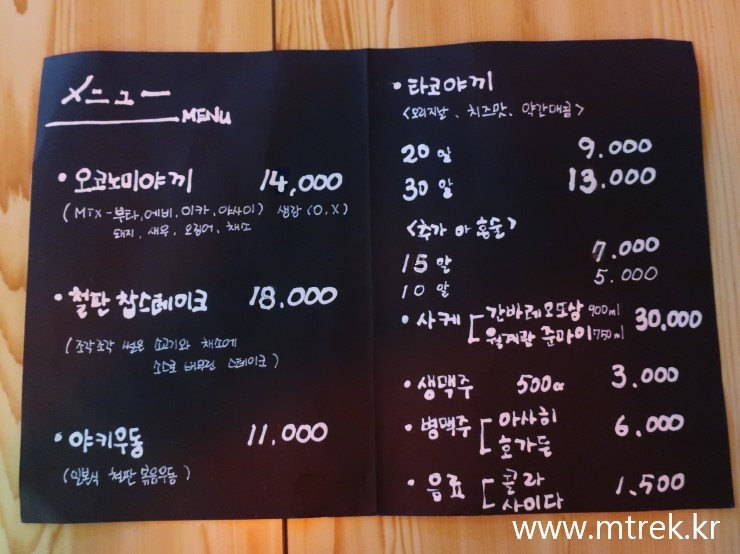 メニュー
MENU
• 오코노미야끼 14,000
(MIX-부타, 에비, 이카, 야사이) 생강 (O, X)
돼지, 새우, 오징어, 채소
• 철판 찹스테이크 18.000
(조각조각 썰은 소고기와 채소에
소스로 버무린 스테이크)
• 야키우동 11,000
(일본식 철판 볶음우동)
• 타코야끼
<오리지날, 치즈맛, 약간매콤>
20 알 9.000
30 알 13.000
<추가 or 혼술>
15 알 7.000
10 알 5.000
• 사케 [ 간바레오또상 900ml
월계관 준마이 750ml 30,000
• 생맥주 500cc 3.000
• 병맥주 [ 아사히
호가든 6.000
• 음료 [ 콜라
사이다 1.500
www.mtrek.kr